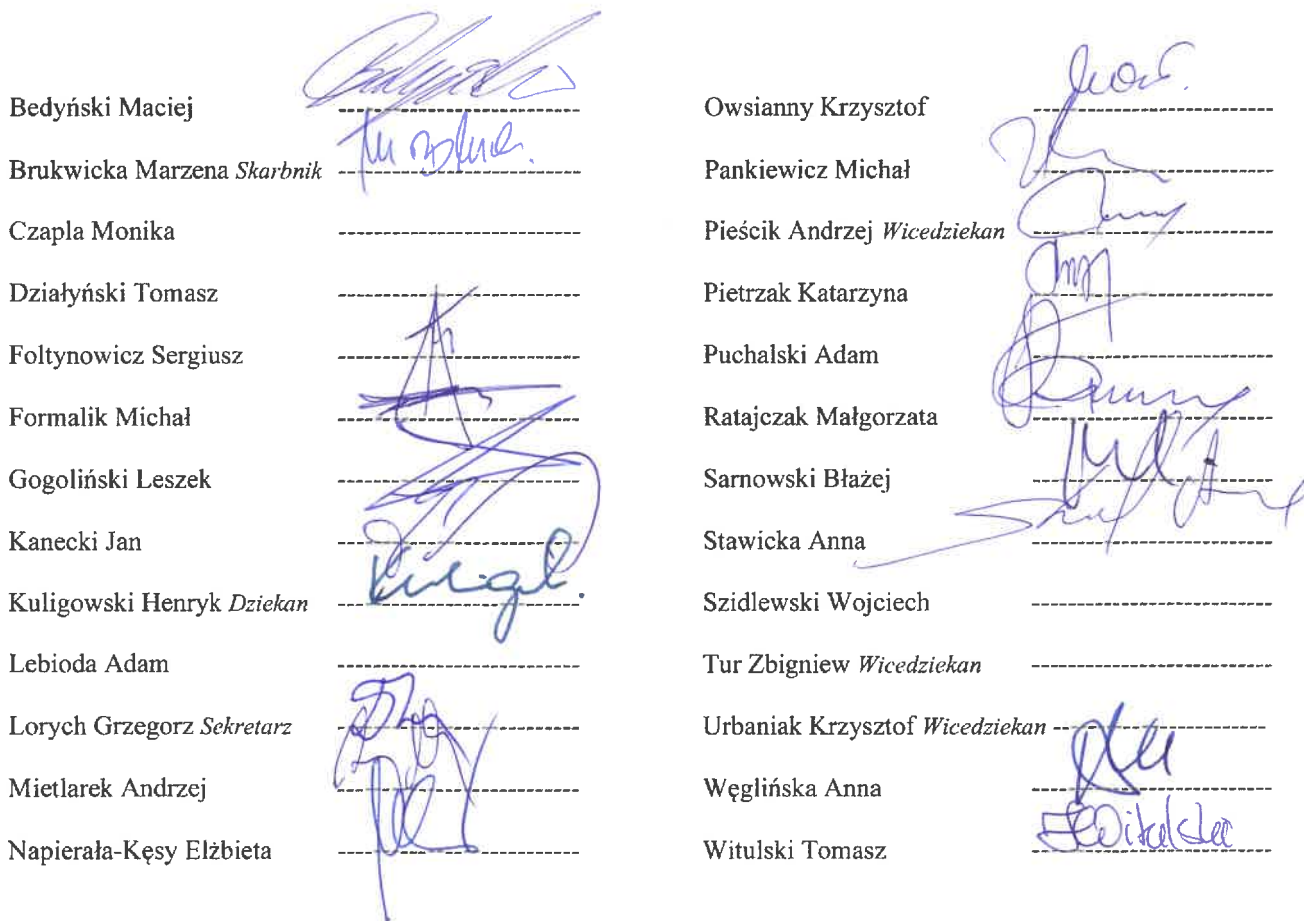 Bedyński Maciej
Brukwicka Marzena Skarbnik
Czapla Monika
Działyński Tomasz
Foltynowicz Sergiusz
Formalik Michał
Gogoliński Leszek
Kanecki Jan
Kuligowski Henryk Dziekan
Lebioda Adam
Lorych Grzegorz Sekretarz
Mietlarek Andrzej
Napierała-Kęsy Elżbieta
Owsianny Krzysztof
Pankiewicz Michał
Pieścik Andrzej Wicedziekan
Pietrzak Katarzyna
Puchalski Adam
Ratajczak Małgorzata
Sarnowski Błażej
Stawicka Anna
Szidlewski Wojciech
Tur Zbigniew Wicedziekan
Urbaniak Krzysztof Wicedziekan
Węglińska Anna
Witulski Tomasz